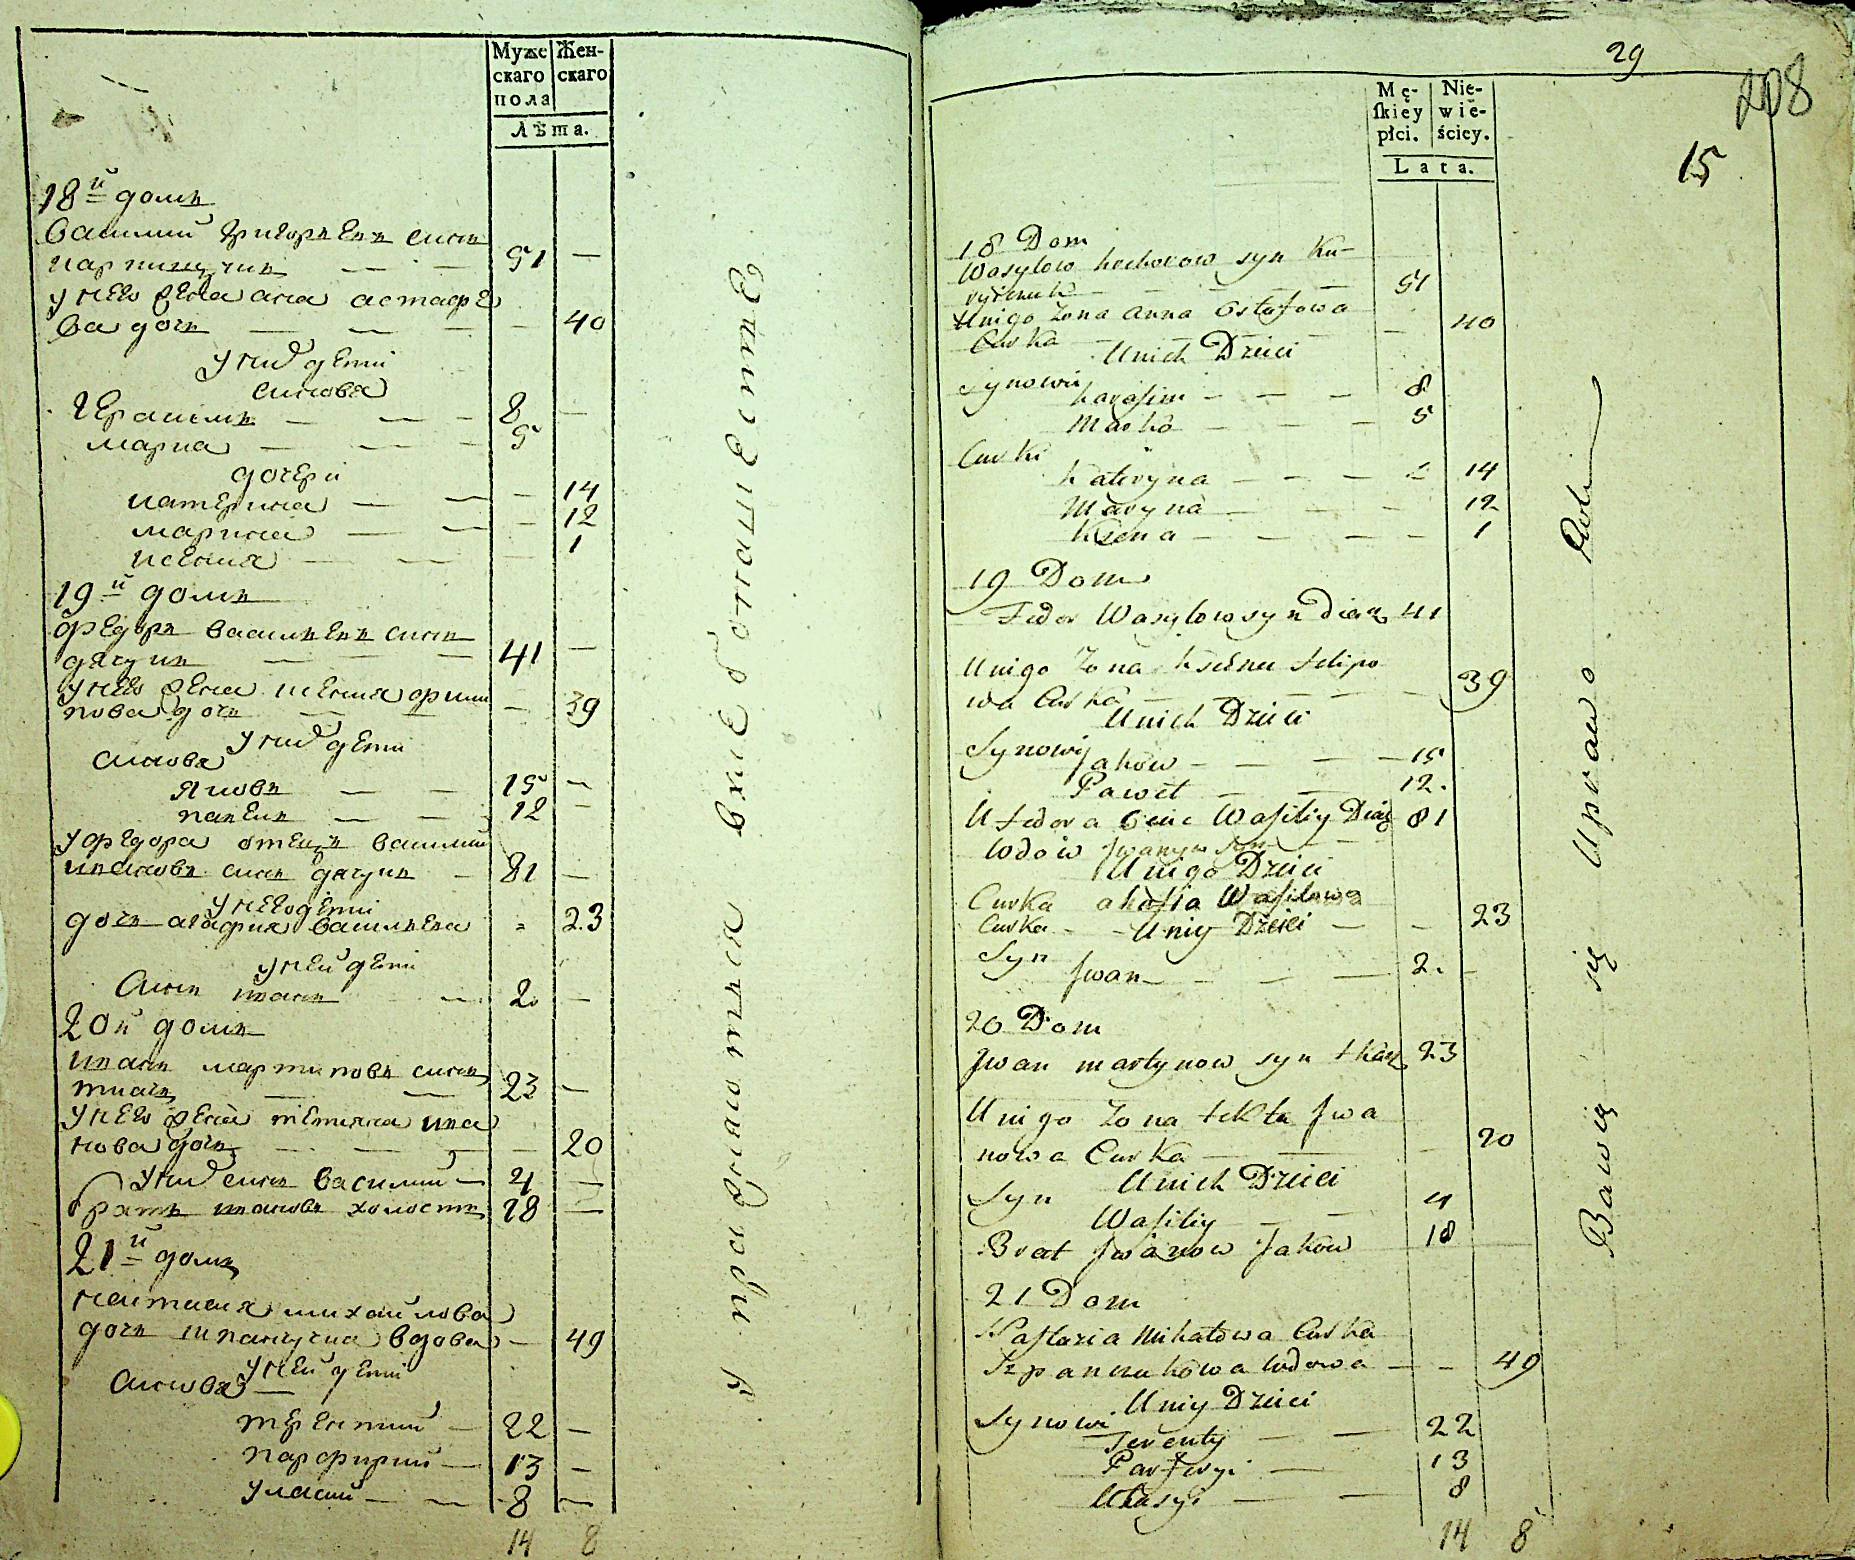 Муже
скаго
пола
Жен-
скаго
Лѣта.
18й домъ
василий григорьевъ синъ
51 —
у него жена анна астафе
ва дочь — — — — 40
у них дети
синова
герасимъ — — — 8 —
марка — — — 5
дочери
катерина — — — 14
марина — — — 12
ксения — — — 1
19й домъ
федоръ васильевъ синъ
дячукъ — — — 41 —
у него жена ксения фили
пова дочь — — — 39
у них дети
синова
яковъ — — 15 —
павелъ — — 12 —
у федора отецъ василий
ивановъ синъ дячукъ — 81 —
у него дети
дочь агафия васильева - 23
у неи дети
синъ иванъ — 2. —
20й домъ
иванъ мартиновъ синъ
ткачъ — — 23 —
у него жена текля ива
нова дочь — — — — 20
у них синъ василий — 4 —
братъ ивановъ холостъ 18 —
21й домъ
настасия михайлова
дочь шпанчучка вдова — 49
у неи дети
синова —
терентий — 22 —
парфирий — 13 —
уласий — — 8 —
14 8
упражняются в хлебопашестве
29
208
15
Mę-
ſkiey
płci.
Nie-
wie-
ściey.
Lata.
18 Dom
Wasylow hrehorow syn Ku-
51
Unigo Zona Anna Ostafowa
Curka — — — 40
Unich Dzieci
Synowie
harasim — — — 8
Marko — — — 5
Curki
Kateryna — — — 14
Maryna — — — 12
Ksena — — — — 1
19 Dom
Fedor Wasylow syn Diak 41
Unigo Zona Ksena Filipo
wa Curka — — — 39
Unich Dzieci
Synowie
Jakow — — — 15
Paweł — — 12.
U Fedora Ociec Wasiliy Diak 81
Wdow Iwanow syn — —
Unigo Dzieci
Curka ahafia Wasilowa
Curka — Uniy Dzieci — — 23
Syn Iwan — — — 2. —
20 Dom
Iwan martynow syn tkacz 23
Unigo Zona tekla Iwa
nowa Curka — — — 20
Unich Dzieci
Syn
Wasiliy — — 4
Brat Iwanow Jakow 18
21 Dom
Nastazia Mihałowa Curka
Szpanczukowa wdowa — — 49
Uniy Dzieci
Synowie
Terenty — — 22
Parfiryi — 13
Ułasyi — — 8
14 8
Bawią się Uprawo Roli